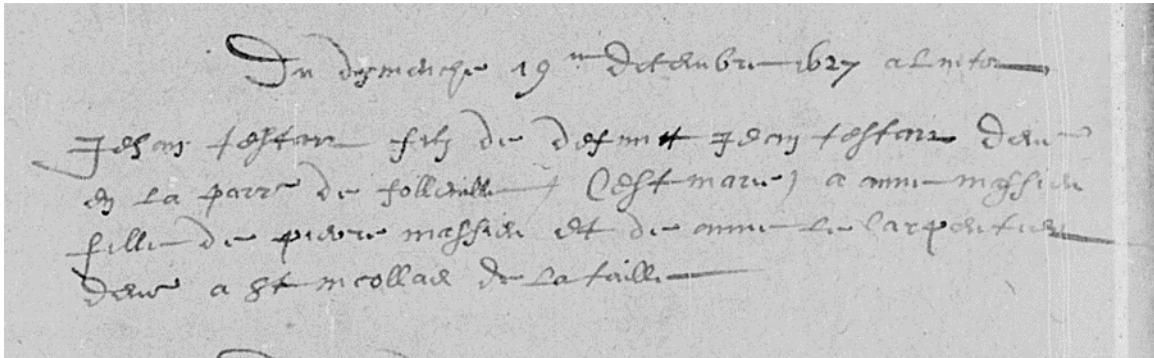 Du dymenche 19me decembre 1627 a Luitor
Jehan testart filz de deffunct Jean testart demt
en La parre de folleville (c'est marie) a anne massieu
fille de pierre massieu et de anne Le Carpentier
demt a St nicollas de La taille